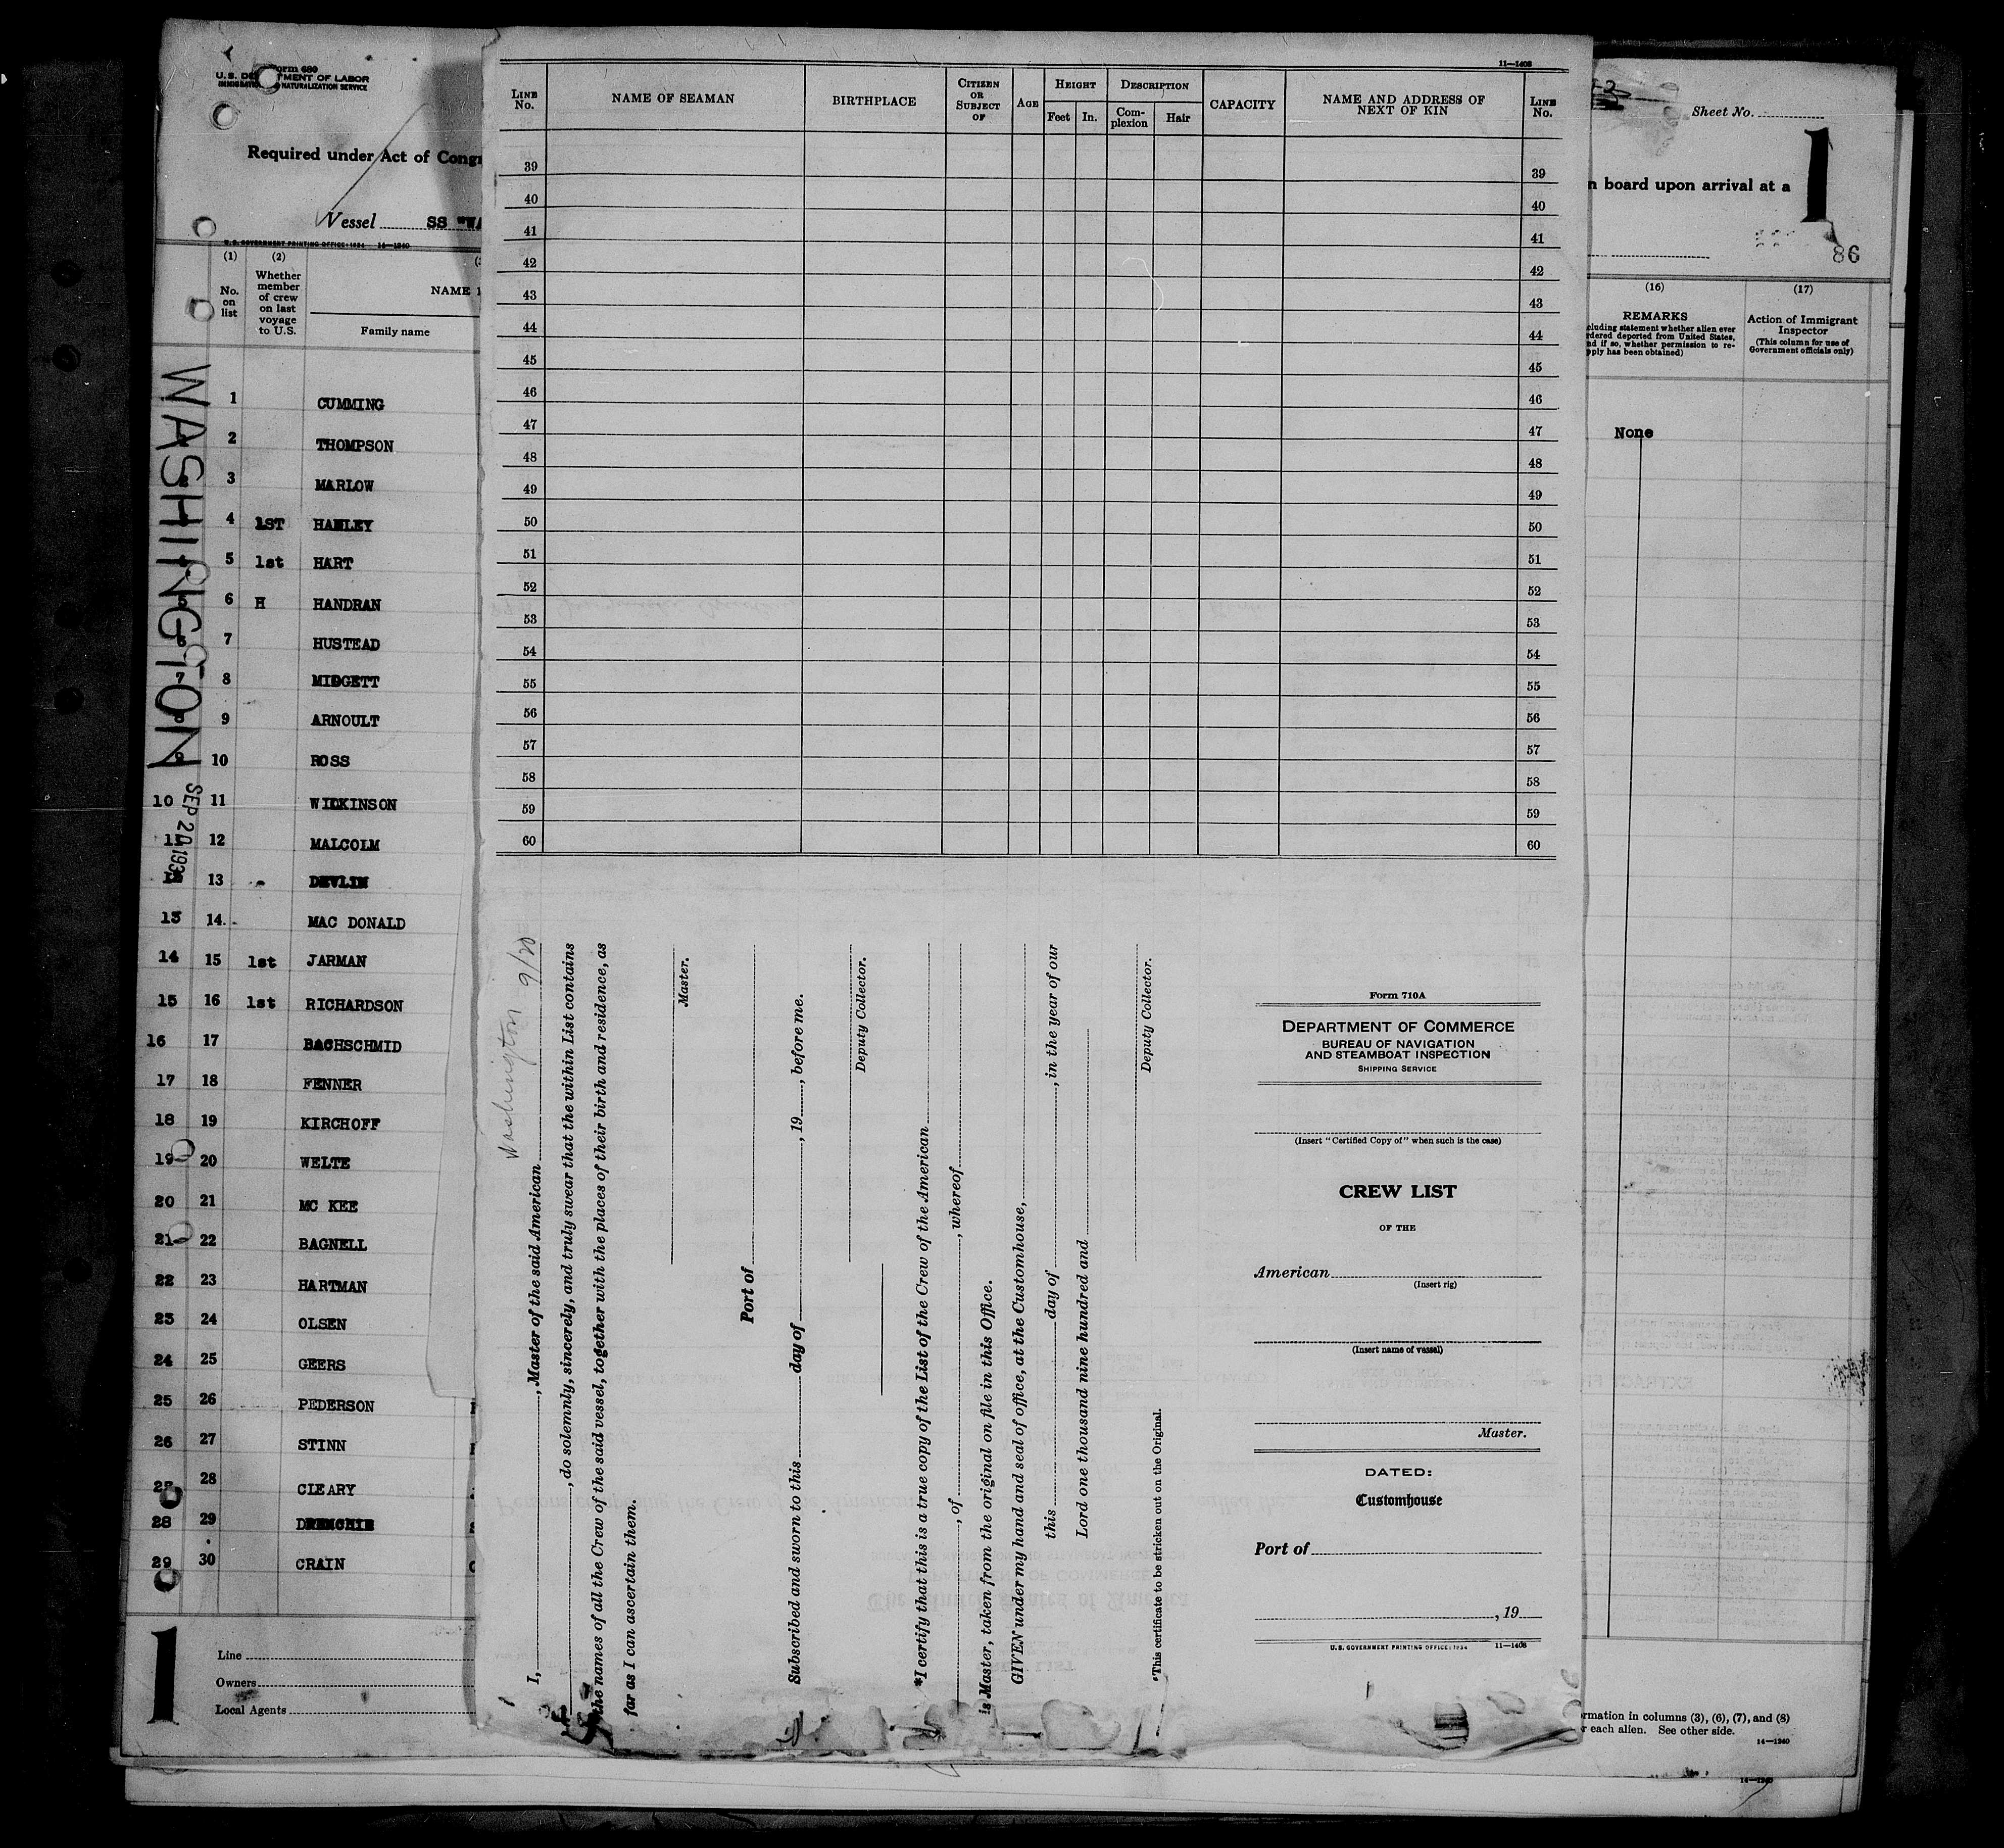 Form 680
U.S. DE TMENT OF LABOR
IMMIGRATI NATURALIZATION SERVICE
Required under Act of Congr
Vessel SS "WA
U.S. GOVERNMENT PRINTING OFFICE: 1934 14—1240
(1) (2) (3
No. on list
Whether member of crew on last voyage to U.S.
NAME I
Family name
WASHINGTON
SEP 20 193
1 CUMMING
2 THOMPSON
3 MARLOW
4 1ST HANLEY
5 1st HART
5 6 H HANDRAN
7 HUSTEAD
7 8 MIDGETT
9 ARNOULT
9 10 ROSS
10 11 WILKINSON
11 12 MALCOLM
12 13 DEVLIN
13 14 MAC DONALD
14 15 1st JARMAN
15 16 1st RICHARDSON
16 17 BACHSCHMID
17 18 FENNER
18 19 KIRCHOFF
19 20 WELTE
20 21 MC KEE
21 22 BAGNELL
22 23 HARTMAN
23 24 OLSEN
24 25 GEERS
25 26 PEDERSON
26 27 STINN
27 28 CLEARY
28 29
29 30 CRAIN
1
Line
Owners
Local Agents
11—1408
LINE No.
NAME OF SEAMAN
BIRTHPLACE
CITIZEN OR SUBJECT OF
AGE
HEIGHT
Feet In.
DESCRIPTION
Complexion Hair
CAPACITY
NAME AND ADDRESS OF NEXT OF KIN
LINE No.
39 39
40 40
41 41
42 42
43 43
44 44
45 45
46 46
47 47
48 48
49 49
50 50
51 51
52 52
53 53
54 54
55 55
56 56
57 57
58 58
59 59
60 60
Washington 9/20
I, , Master of the said American
, do solemnly, sincerely, and truly swear that the within List contains
the names of all the Crew of the said vessel, together with the places of their birth and residence, as
far as I can ascertain them.
Master.
Port of
Subscribed and sworn to this day of , 19 , before me.
Deputy Collector.
*I certify that this is a true copy of the List of the Crew of the American
, of , whereof
is Master, taken from the original on file in this Office.
GIVEN under my hand and seal of office, at the Customhouse,
this day of , in the year of our
Lord one thousand nine hundred and
Deputy Collector.
*This certificate to be stricken out on the Original.
Form 710A
DEPARTMENT OF COMMERCE
BUREAU OF NAVIGATION
AND STEAMBOAT INSPECTION
SHIPPING SERVICE
(Insert "Certified Copy of" when such is the case)
CREW LIST
OF THE
American
(Insert rig)
(Insert name of vessel)
Master.
DATED:
Customhouse
Port of
, 19
U.S. GOVERNMENT PRINTING OFFICE: 1934 11—1408
Sheet No.
1
n board upon arrival at a
86
(16) (17)
REMARKS
cluding statement whether alien ever
rdered deported from United States,
nd if so, whether permission to re-
pply has been obtained)
Action of Immigrant
Inspector
(This column for use of
Government officials only)
None
rmation in columns (3), (6), (7), and (8)
r each alien. See other side.
14—1240